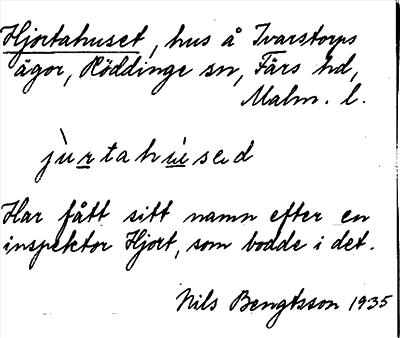 Hjortahuset, hus å Ivarstorps
ägor, Röddinge sn, Färs hd,
Malm. l.
jùrtahùsed
Har fått sitt namn efter en
inspektor Hjort, som bodde i det.
Nils Bengtsson 1935